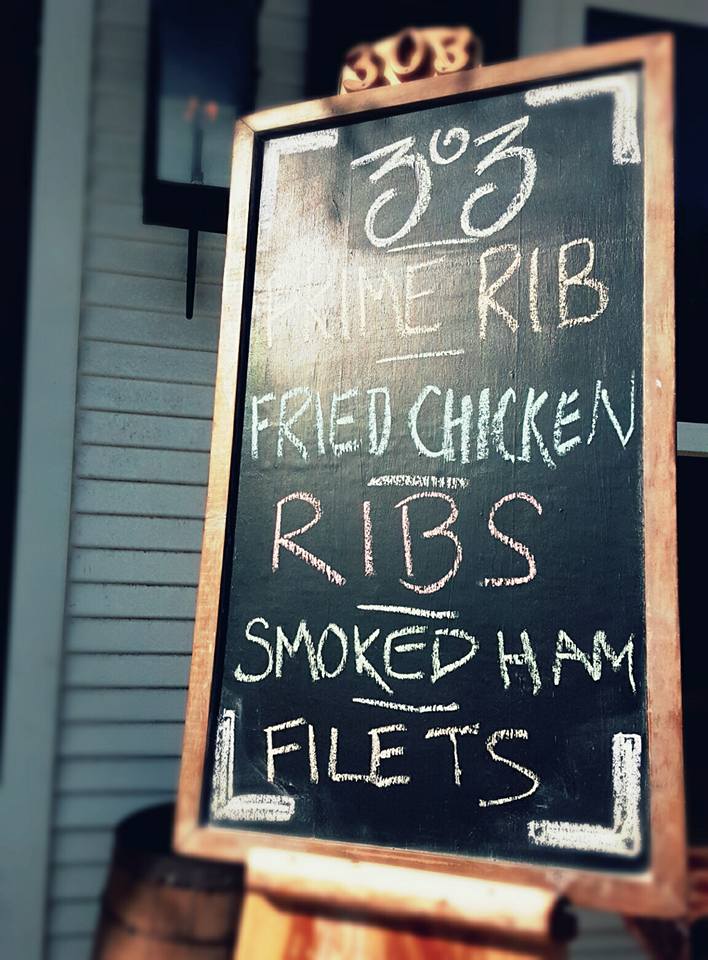 303
303
PRIME RIB
FRIED CHICKEN
RIBS
SMOKED HAM
FILETS